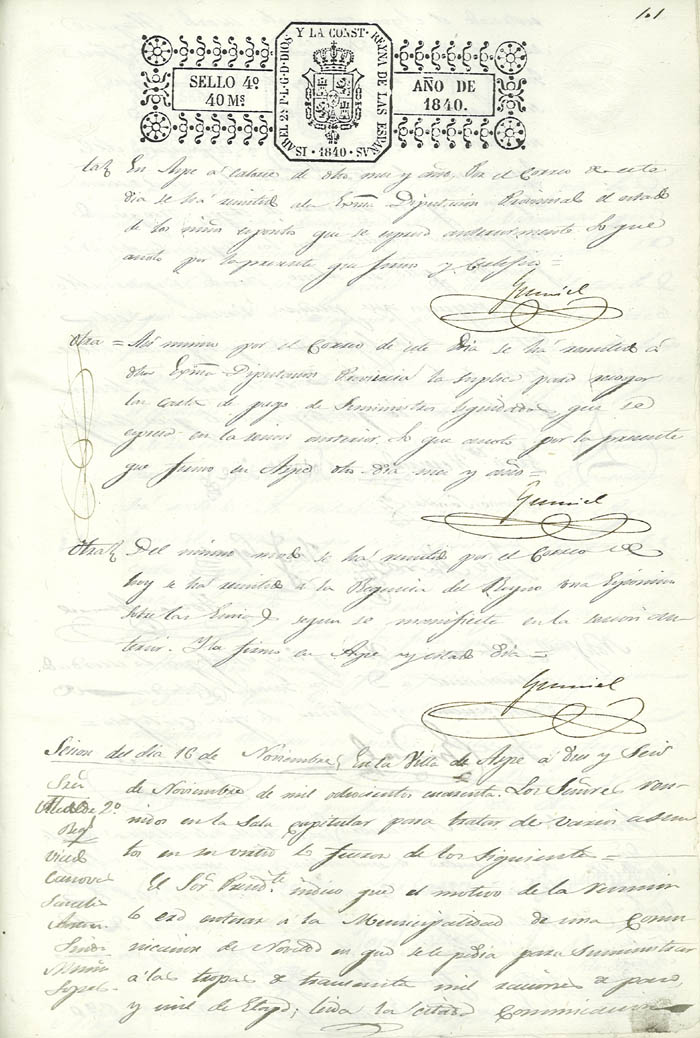 101
ISABEL 2ª P.L.G.D. DIOS Y LA CONST. REYNA DE LAS ESPAÑAS · 1840 ·
SELLO 4º 40 Ms
AÑO DE 1840.
En Aspe á catorce de dho mes y año, Por el Correo de este
dia se há remitido ala Exma Diputacion Provincial el estado
de los niños expositos que se espresa anteriormente. Lo que
anoto por la presente que firmo y Certifico =
Gumiel
Otra = Asi mismo por el Correo de este dia se há remitido á
dha Exma Diputacion Provincial la suplica para recoger
las cartas de pago de Suministros liquidados, que se
espresa en la sesion anterior. Lo que anoto por la presente
que firmo en Aspe dho dia mes y año =
Gumiel
Otra Del mismo modo se há remitido por el Correo de
hoy se há remitido á la Regencia del Reyno una Esposicion
sobre las segun se manifiesta en la sesion an-
terior. Y la firmo en Aspe y citado dia =
Gumiel
Sesion del dia 16 de Noviembre, En la Villa de Aspe á diez y Seis
de Noviembre de mil ochocientos cuarenta. Los Señores reu-
nidos en la Sala capitular para tratar de varios asun-
tos en su virtud lo fueron de los siguiente =
Señ
Alcalde 2º
Canovas
El Sor Presidte indicó que el motivo de la reunion
lo era enterar á la Municipalidad de una Comu-
nicacion de Novelda en que se le pedia para Suministrar
á las tropas de transeunte mil raciones de pan,
y mil de Etapa; leida la citada Comunicacion